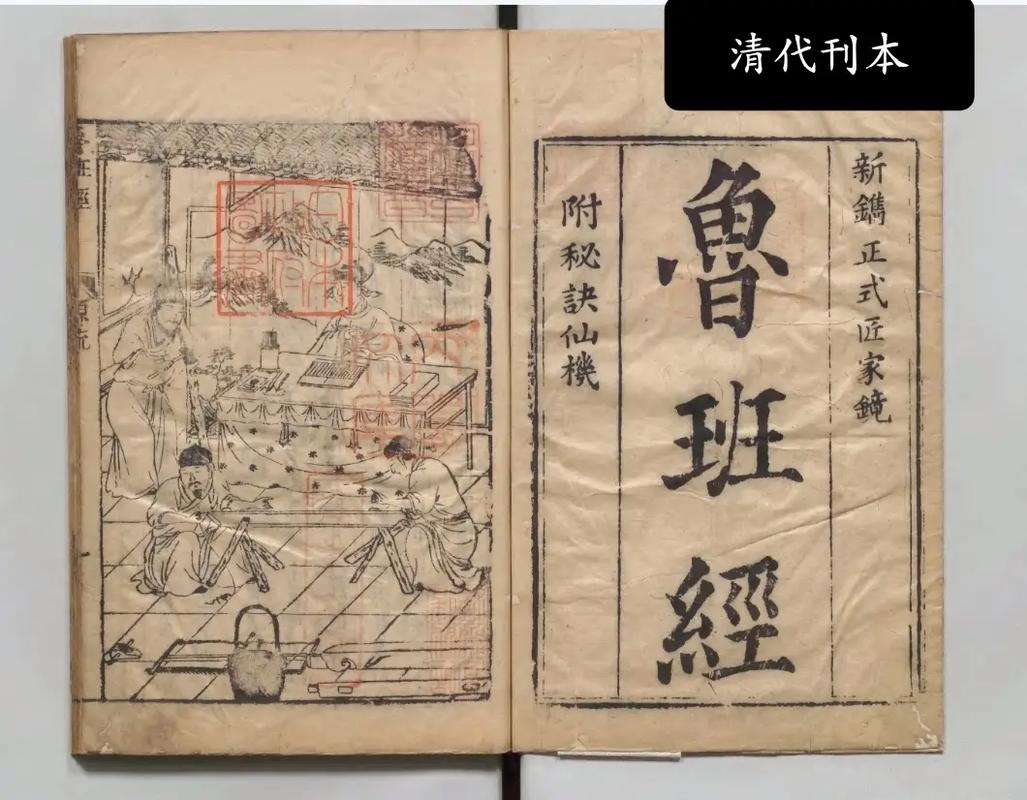 清代刊本
新鐫正式匠家鏡
魯班經
附秘訣仙機